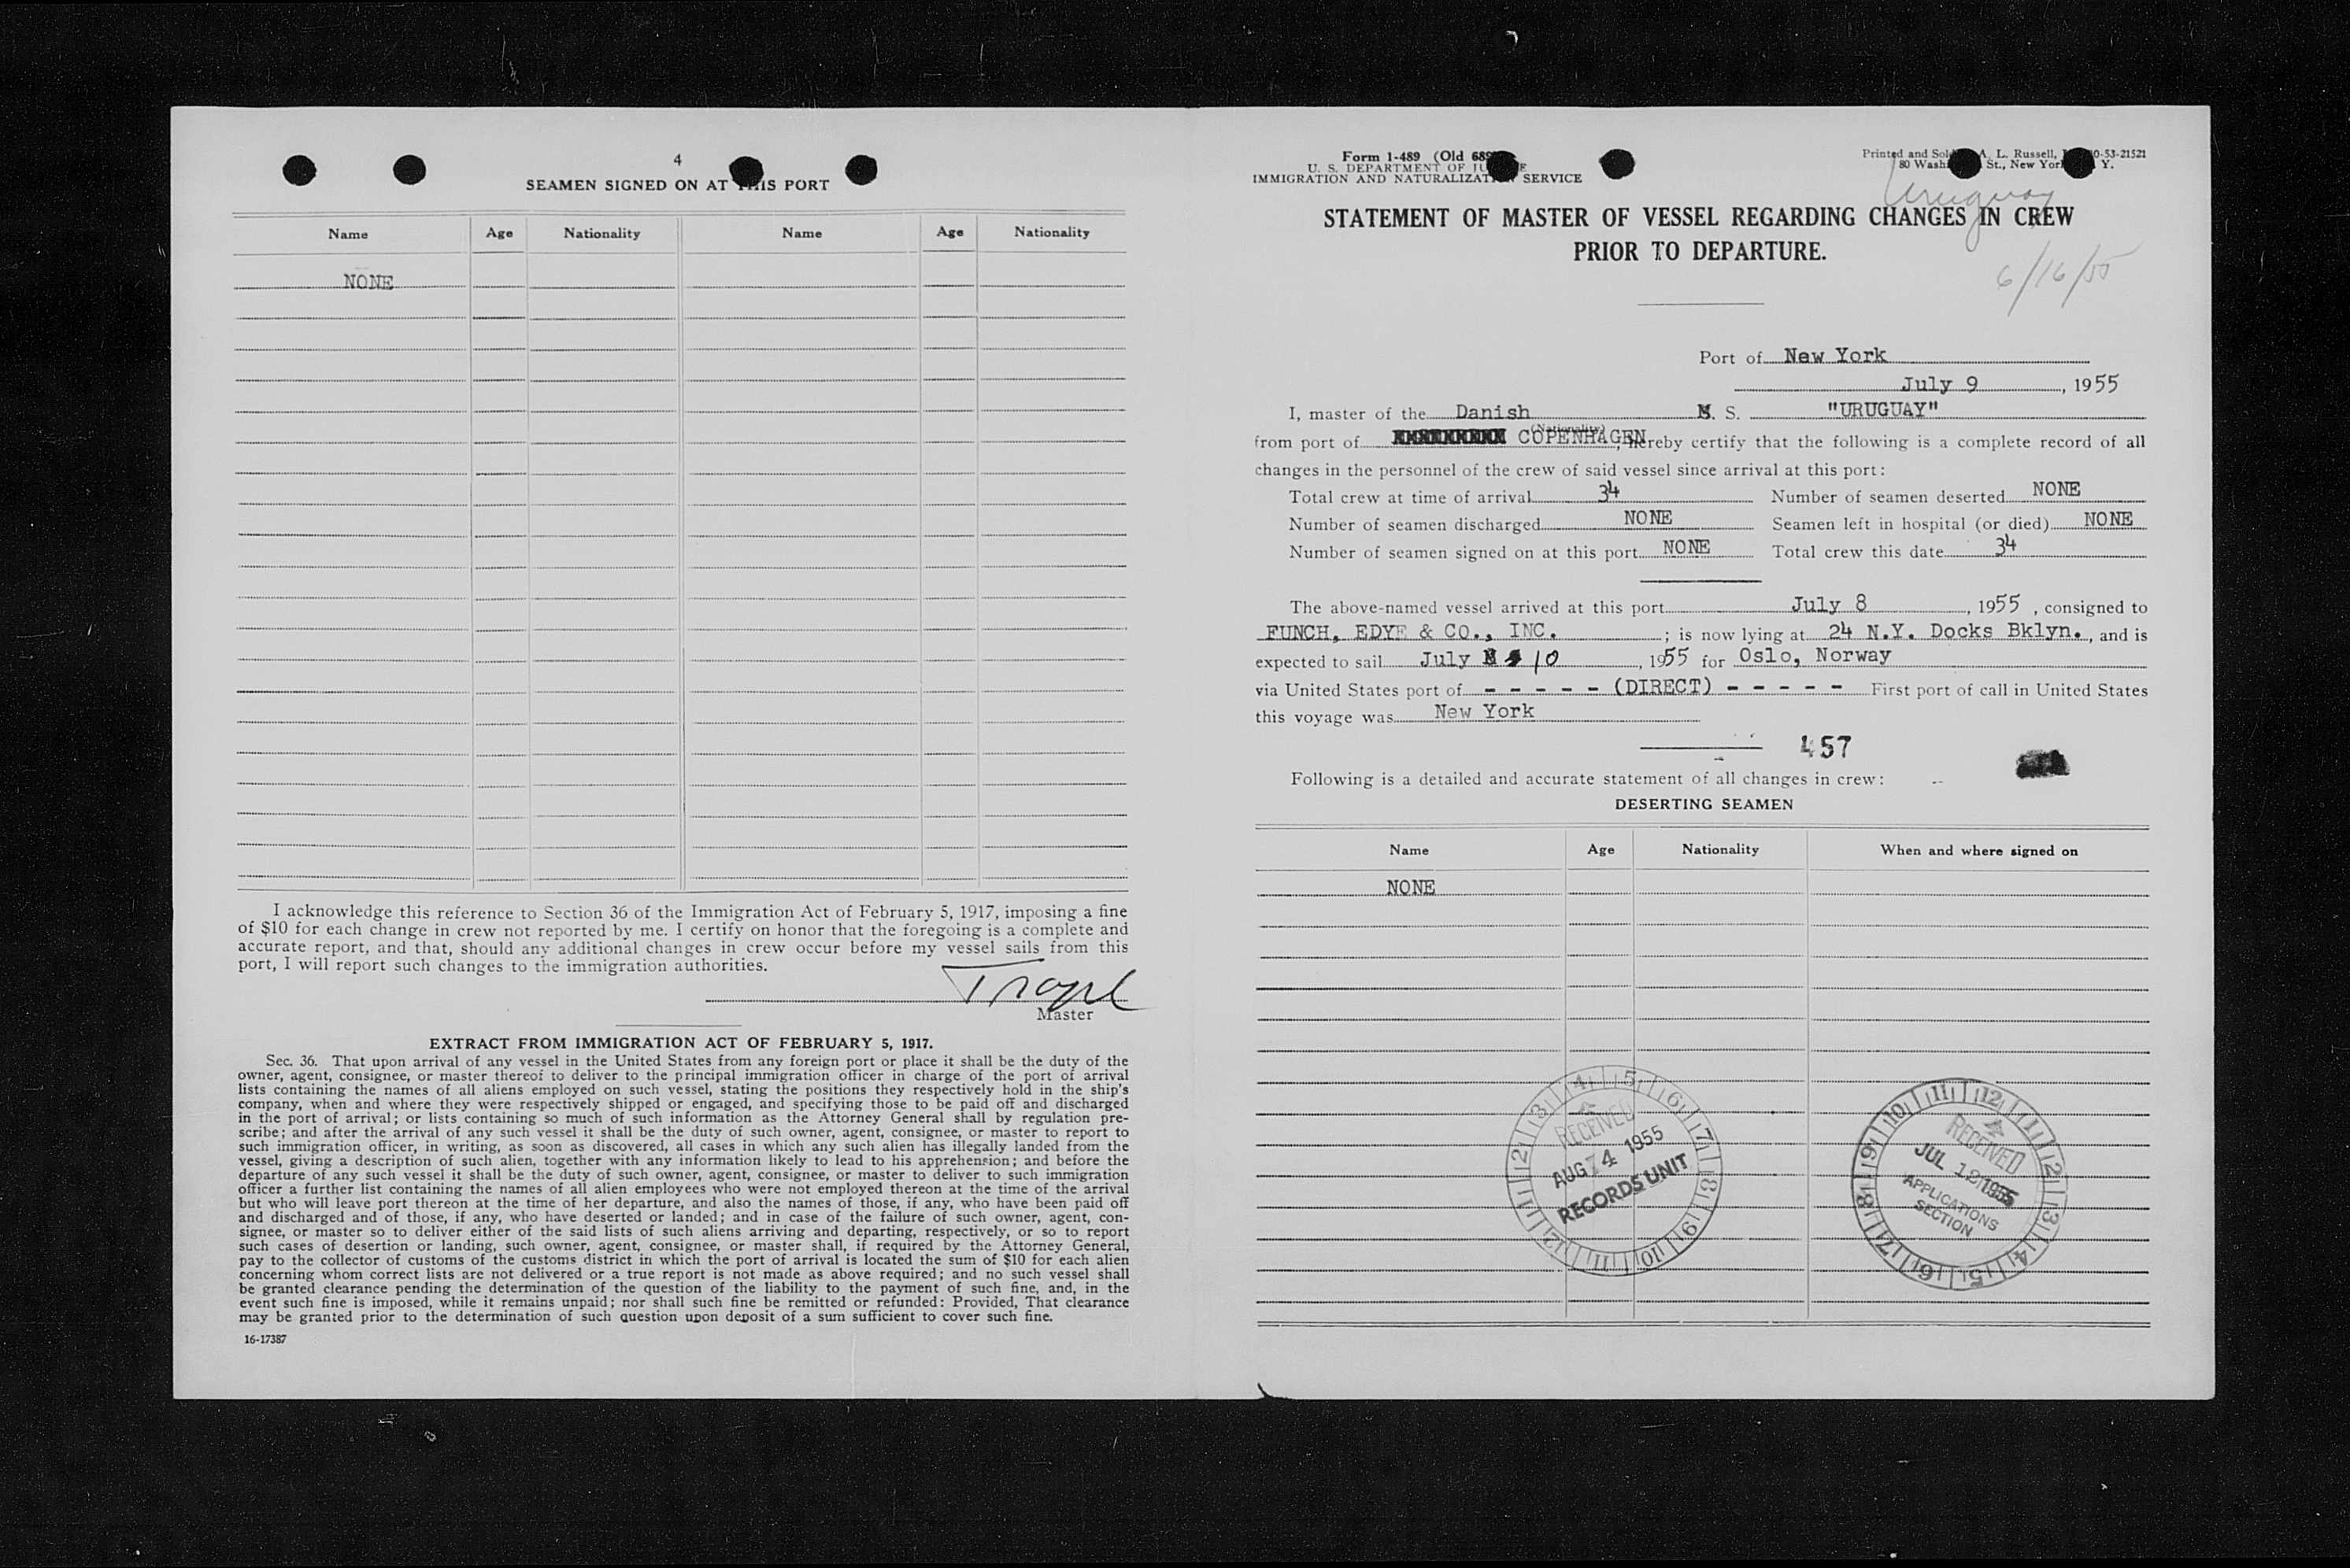 4
SEAMEN SIGNED ON AT THIS PORT
Name Age Nationality Name Age Nationality
NONE
I acknowledge this reference to Section 36 of the Immigration Act of February 5, 1917, imposing a fine
of $10 for each change in crew not reported by me. I certify on honor that the foregoing is a complete and
accurate report, and that, should any additional changes in crew occur before my vessel sails from this
port, I will report such changes to the immigration authorities.
Master
EXTRACT FROM IMMIGRATION ACT OF FEBRUARY 5, 1917.
Sec. 36. That upon arrival of any vessel in the United States from any foreign port or place it shall be the duty of the
owner, agent, consignee, or master thereof to deliver to the principal immigration officer in charge of the port of arrival
lists containing the names of all aliens employed on such vessel, stating the positions they respectively hold in the ship's
company, when and where they were respectively shipped or engaged, and specifying those to be paid off and discharged
in the port of arrival; or lists containing so much of such information as the Attorney General shall by regulation pre-
scribe; and after the arrival of any such vessel it shall be the duty of such owner, agent, consignee, or master to report to
such immigration officer, in writing, as soon as discovered, all cases in which any such alien has illegally landed from the
vessel, giving a description of such alien, together with any information likely to lead to his apprehension; and before the
departure of any such vessel it shall be the duty of such owner, agent, consignee, or master to deliver to such immigration
officer a further list containing the names of all alien employees who were not employed thereon at the time of the arrival
but who will leave port thereon at the time of her departure, and also the names of those, if any, who have been paid off
and discharged and of those, if any, who have deserted or landed; and in case of the failure of such owner, agent, con-
signee, or master so to deliver either of the said lists of such aliens arriving and departing, respectively, or so to report
such cases of desertion or landing, such owner, agent, consignee, or master shall, if required by the Attorney General,
pay to the collector of customs of the customs district in which the port of arrival is located the sum of $10 for each alien
concerning whom correct lists are not delivered or a true report is not made as above required; and no such vessel shall
be granted clearance pending the determination of the question of the liability to the payment of such fine, and, in the
event such fine is imposed, while it remains unpaid; nor shall such fine be remitted or refunded: Provided, That clearance
may be granted prior to the determination of such question upon deposit of a sum sufficient to cover such fine.
16-17387
Form 1-489 (Old 689
U. S. DEPARTMENT OF JUSTICE
IMMIGRATION AND NATURALIZATION SERVICE
Printed and Sold A. L. Russell, 0-53-21521
80 Wash St., New York Y.
Uruguay
STATEMENT OF MASTER OF VESSEL REGARDING CHANGES IN CREW
PRIOR TO DEPARTURE.
6/16/55
Port of New York
July 9, 1955
I, master of the Danish M. S. "URUGUAY"
(Nationality)
from port of COPENHAGEN, hereby certify that the following is a complete record of all
changes in the personnel of the crew of said vessel since arrival at this port:
Total crew at time of arrival 34 Number of seamen deserted NONE
Number of seamen discharged NONE Seamen left in hospital (or died) NONE
Number of seamen signed on at this port NONE Total crew this date 34
The above-named vessel arrived at this port July 8, 1955, consigned to
FUNCH, EDYE & CO., INC.; is now lying at 24 N.Y. Docks Bklyn., and is
expected to sail July 10, 1955 for Oslo, Norway
via United States port of - - - - - (DIRECT) - - - - - First port of call in United States
this voyage was New York
457
Following is a detailed and accurate statement of all changes in crew:
DESERTING SEAMEN
Name Age Nationality When and where signed on
NONE
RECEIVED
AUG 4 1955
RECORDS UNIT
1 2 3 4 5 6 7 8 9 10 11 12
RECEIVED
JUL 12 1955
APPLICATIONS
SECTION
1 2 3 4 5 6 7 8 9 10 11 12